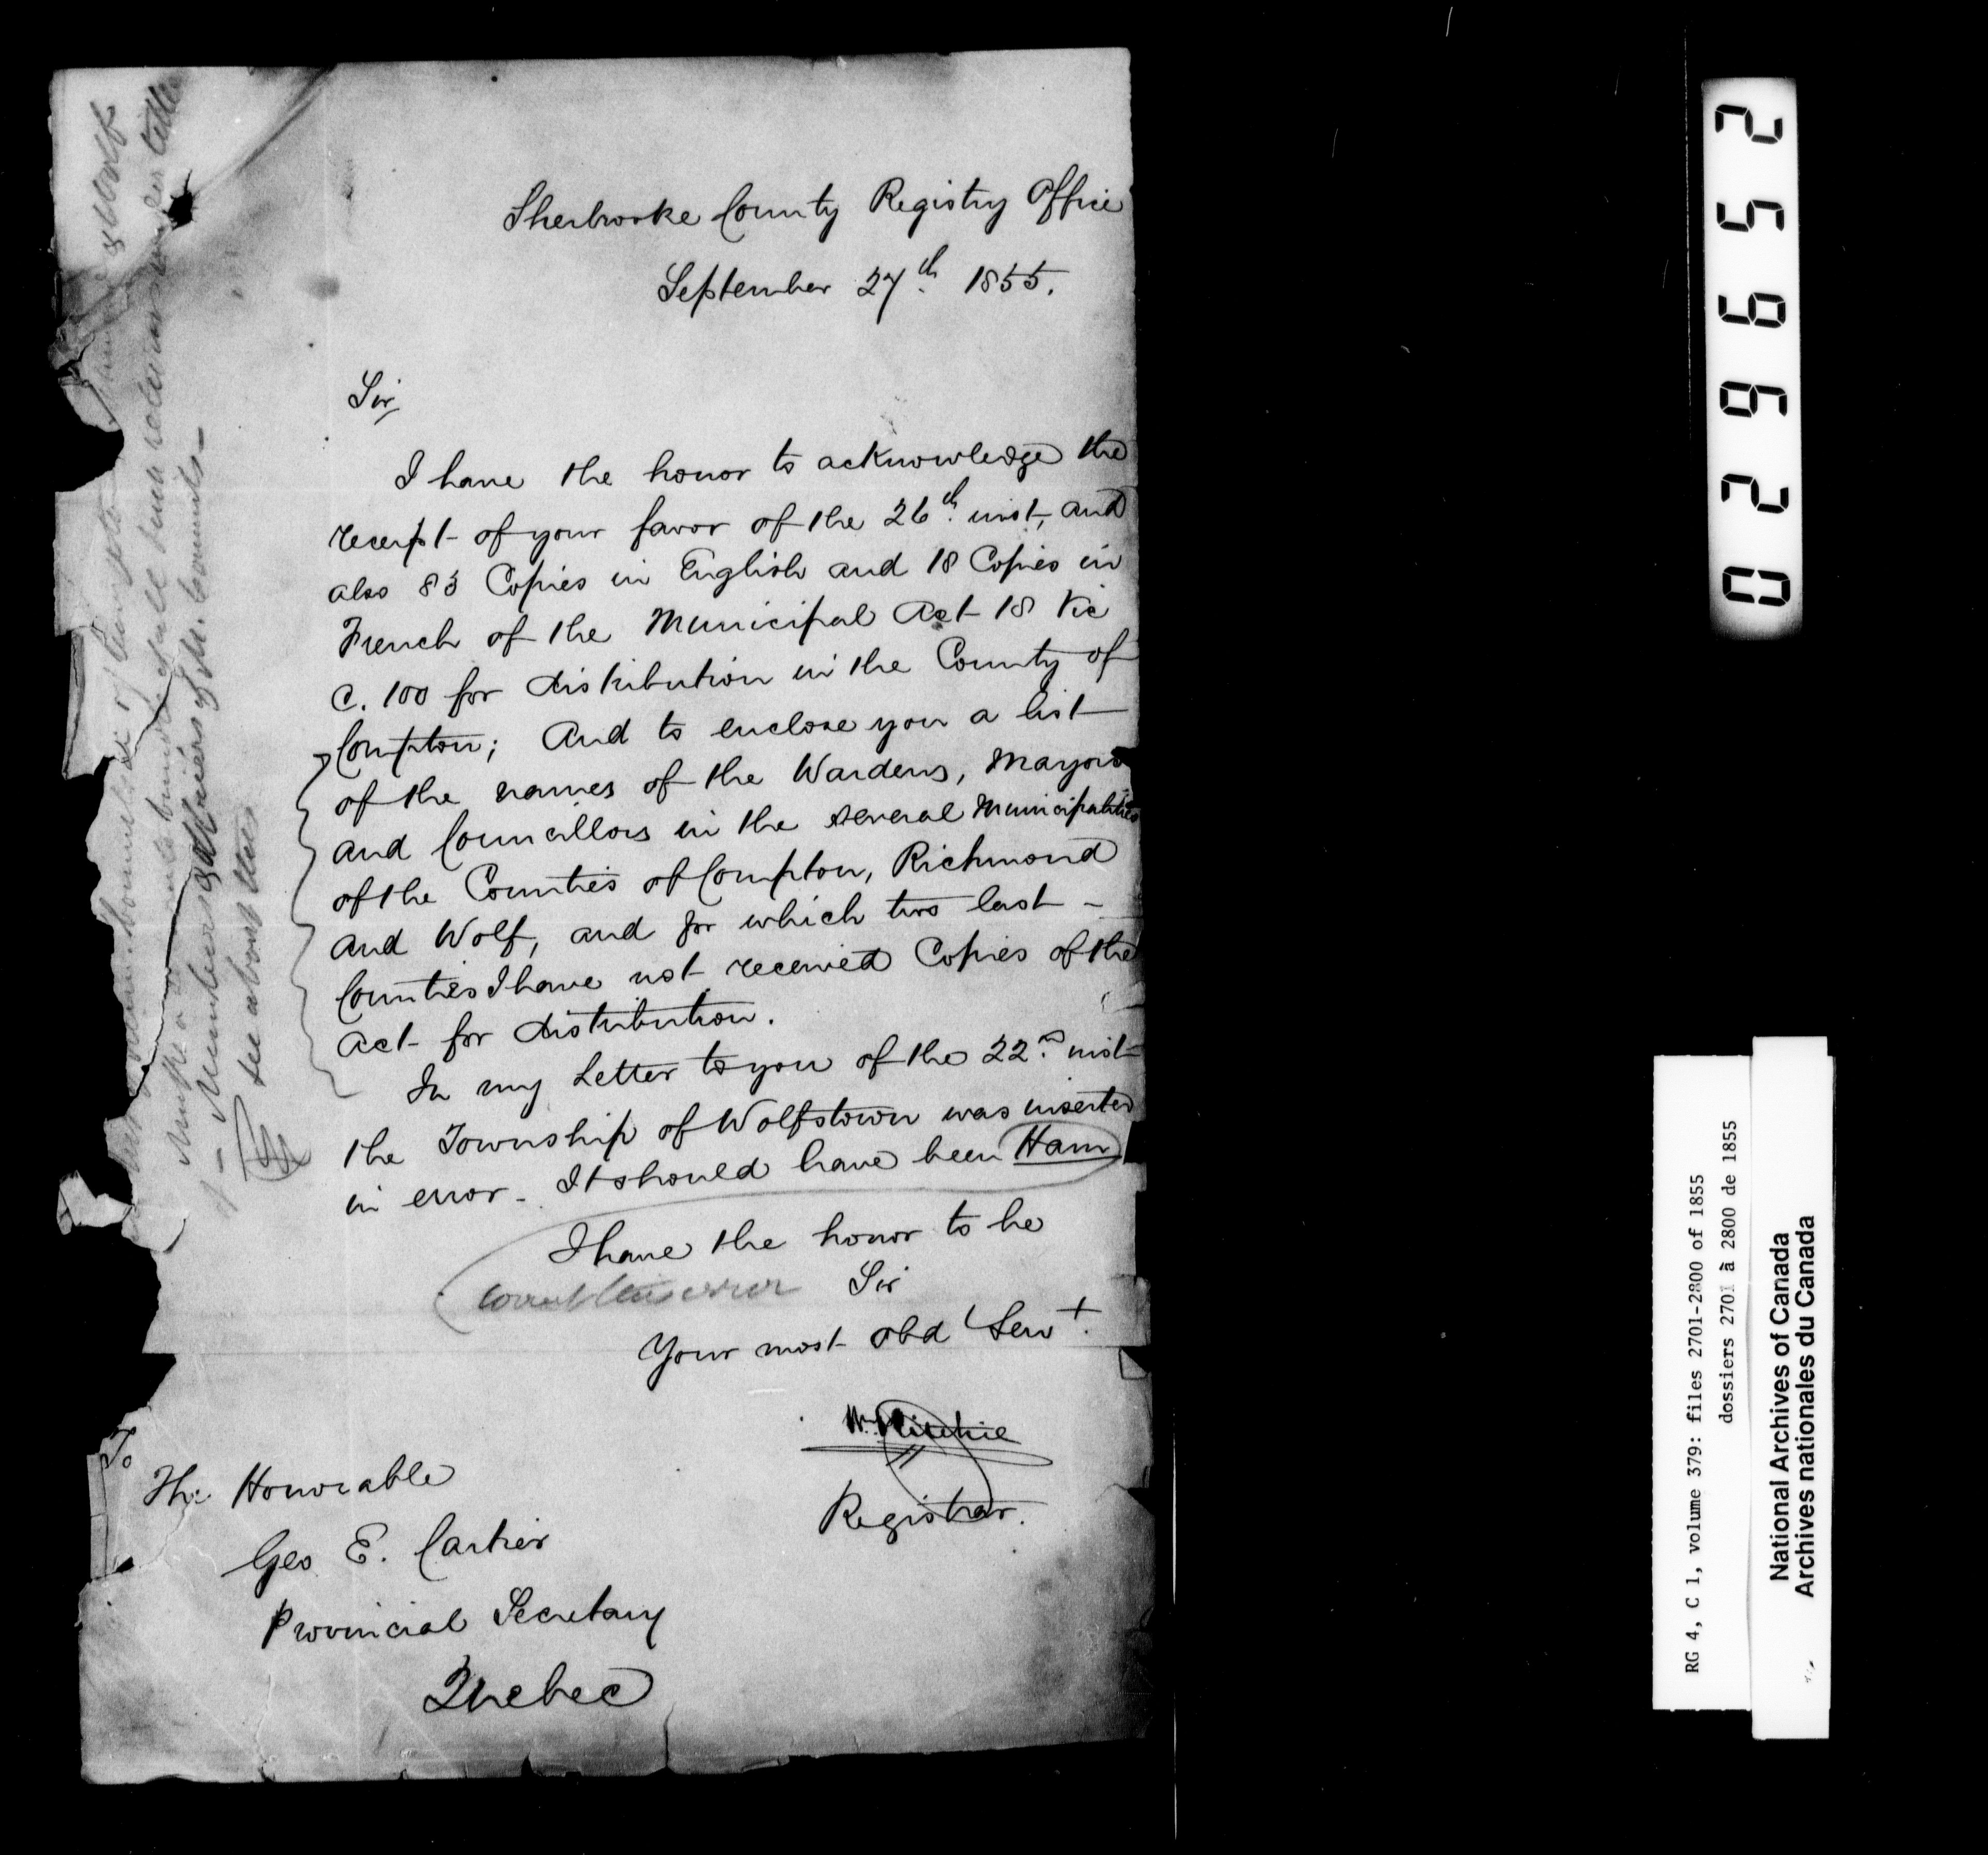 Sherbrooke County Registry Office
September 27th 1855.
Sir,
I have the honor to acknowledge the
receipt of your favor of the 26th inst, and
also 83 Copies in English and 18 Copies in
French of the Municipal Act 18 Vic
C. 100 for distribution in the County of
Compton; And to enclose you a list
of the names of the Wardens, Mayors
and Councillors in the several Municipalities
of the Counties of Compton, Richmond
and Wolf, and for which two last
Counties I have not received Copies of the
Act for distribution.
In my Letter to you of the 22nd inst
the Township of Wolfstown was inserted
in error - It should have been Ham
I have the honor to be
Correct this error
Sir
Your most obd Servt.
Wm. Ritchie
Registrar.
To
The Honorable
Geo E. Cartier
Provincial Secretary
Quebec
see about this
029652
RG 4, C 1, volume 379: files 2701-2800 of 1855
dossiers 2701 à 2800 de 1855
National Archives of Canada
Archives nationales du Canada